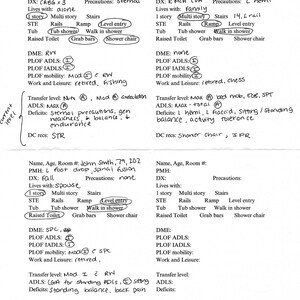 DX: CABG x 3 Precautions: sternal
Lives with: alone
1 story Multi story Stairs
STE Rails Ramp Level entry
Tub Tub shower Walk in shower
Raised Toilet Grab bars Shower chair
DME: RW
PLOF ADLS: I
PLOF IADLS: I
PLOF mobility: Mod I c RW
Work and Leisure: retired, fishing
current level
Transfer level: Min A, Mod A ambulation
ADLS: Max A
Deficits: sternal precautions, gen weakness, ↓ balance, ↓ endurance
DC rec: STR
Lives with: family
1 story Multi story Stairs 14, L rail
STE Rails Ramp Level entry
Tub Tub shower Walk in shower
Raised Toilet Grab bars Shower chair
DME: none
PLOF ADLS: I
PLOF IADLS: I
PLOF mobility: I
Work and Leisure: retired, chess
Transfer level: Max A bed mob, SPT, STS
ADLS: Max - total A
Deficits: L hemi, L flaccid, sitting / standing balance, activity tolerance
DC rec: Shower chair, IPR
Name, Age, Room #: John Smith, 79, 202
PMH: L foot drop, spinal fusion
DX: Fall Precautions: none
Lives with: Spouse
1 story Multi story Stairs
STE Rails Ramp Level entry
Tub Tub shower Walk in shower
Raised Toilet Grab bars Shower chair
DME: SPC,
PLOF ADLS: I
PLOF IADLS: I
PLOF mobility: Mod I c SPC
Work and Leisure: retired,
Transfer level: Mod I c RW
ADLS: CGA for standing ADLs, I sitting
Deficits: Standing balance, back pain
Name, Age, Room #:
PMH:
DX: Precautions:
Lives with:
1 story Multi story Stairs
STE Rails Ramp Level entry
Tub Tub shower Walk in shower
Raised Toilet Grab bars Shower chair
DME:
PLOF ADLS:
PLOF IADLS:
PLOF mobility:
Work and Leisure:
Transfer level:
ADLS:
Deficits: